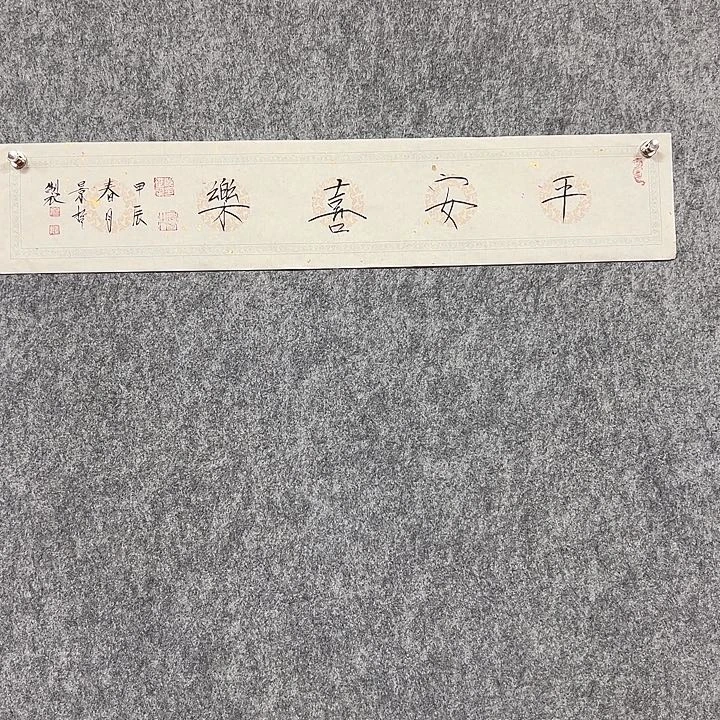 平安喜樂
甲辰
春月
景
製